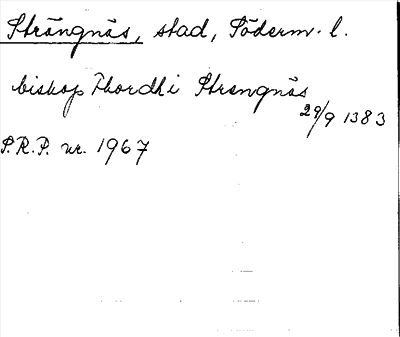 Strängnäs, stad, Söderm. l.
biskop Thordh i Strengnäs
29/9 1383
S.R.P. nr. 1967